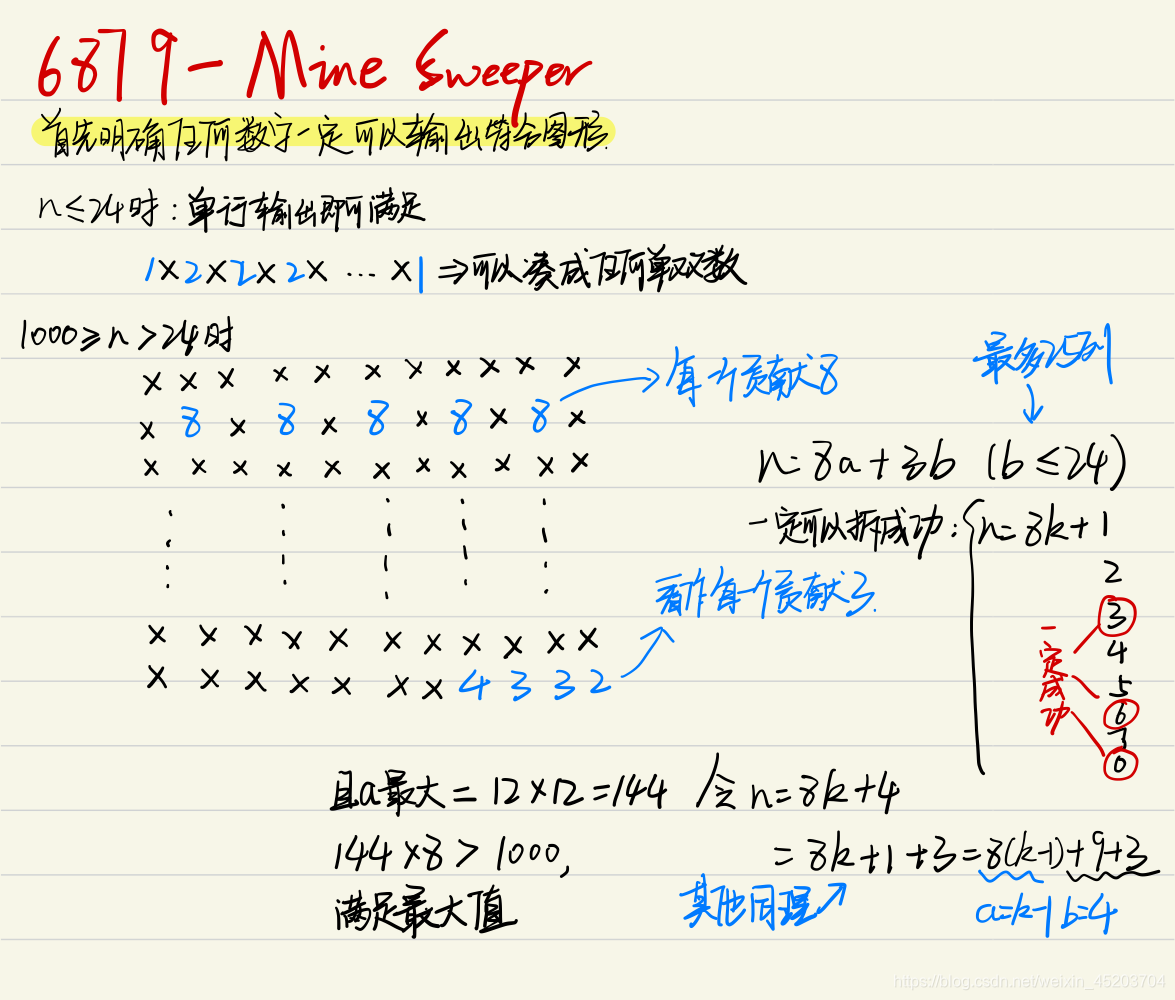 6879-Mine Sweeper
首先明确任何数字一定可以输出符合图形.
n≤24时:单行输出即可满足
1×2×2×2× … ×1 ⇒可以凑成任何单双数
1000≥n>24时
× × × × × × × × × × ×
× 8 × 8 × 8 × 8 × 8 ×
× × × × × × × × × × ×
每个贡献8
最多25列
n=8a+3b (b≤24)
一定可以拆成功: n=8k+1
2
3
4
5
6
7
0
一定成功
看作每一个贡献3.
× × × × × × × × × × ×
× × × × × × × 4 3 3 2
且a最大=12×12=144
144×8>1000,
满足最大值
令n=8k+4
=8k+1+3=8(k-1)+9+3
其他同理
a=k-1 b=4
https://blog.csdn.net/weixin_45203704